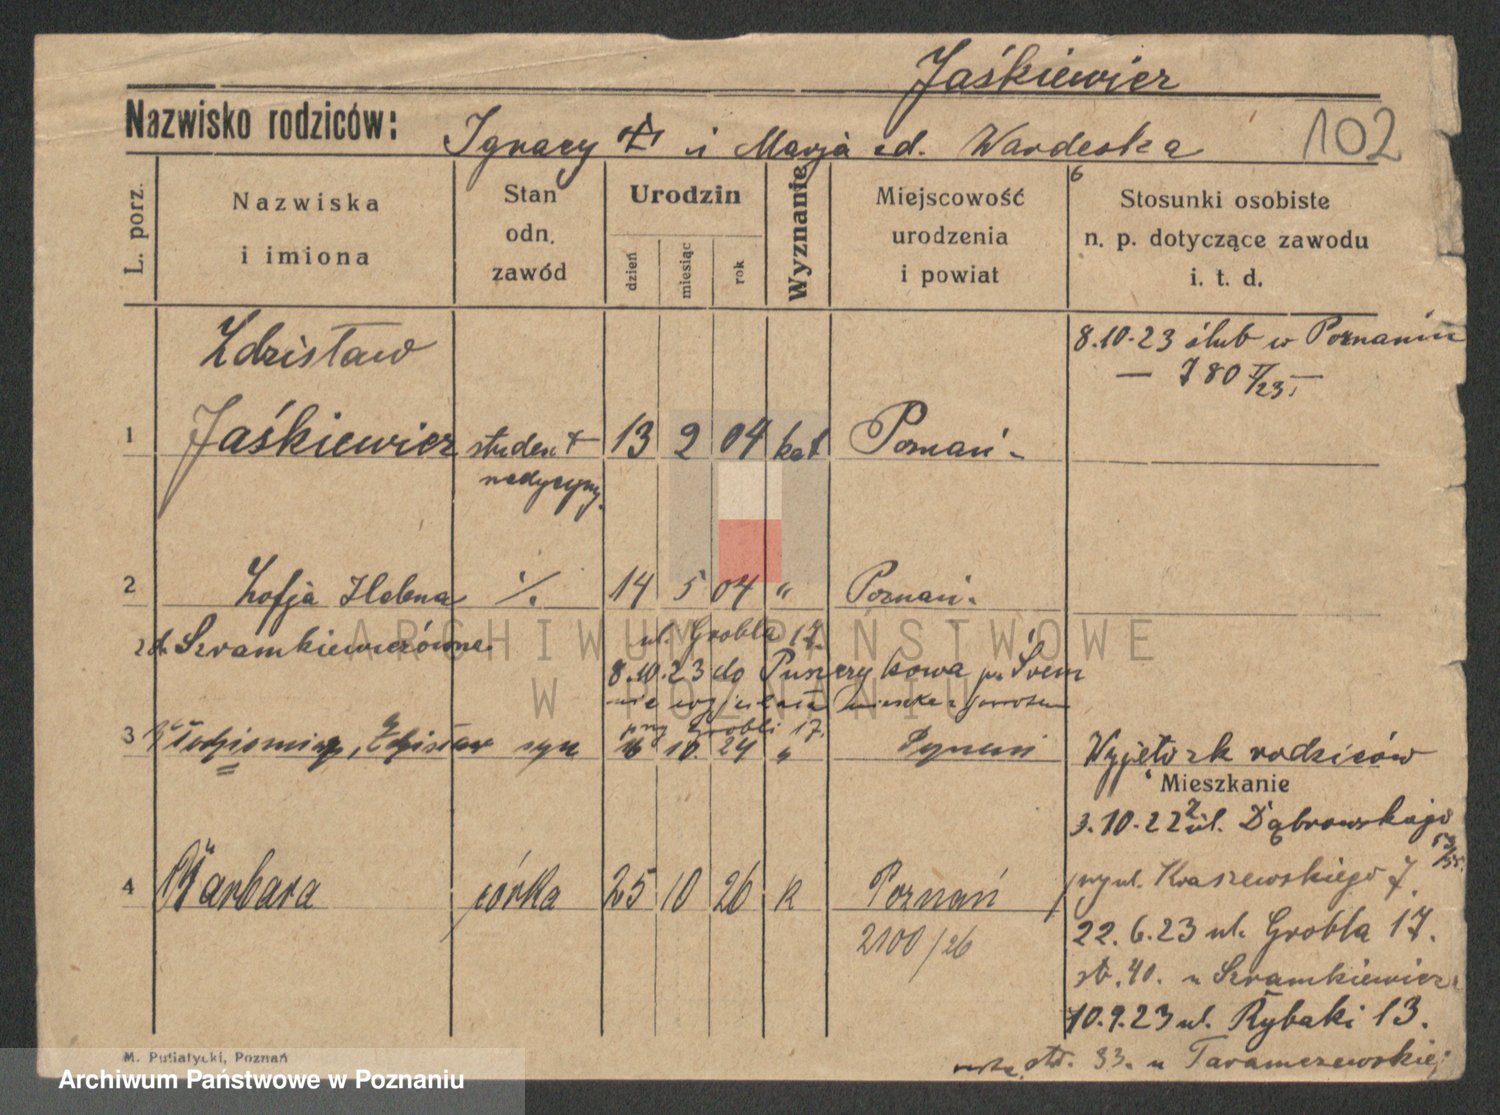 Jaśkiewicz
Nazwisko rodziców: Ignacy i Marja zd. Wardęska
102
L. porz.
Nazwiska
i imiona
Stan
odn.
zawód
Urodzin
dzień
miesiąc
rok
Wyznanie
Miejscowość
urodzenia
i powiat
6
Stosunki osobiste
n. p. dotyczące zawodu
i. t. d.
8.10.23 ślub w Poznaniu
— 780 II/23 —
Zdzisław
1 Jaśkiewicz student 13 2 04 kat Poznań
medycyny
2 Zofja Helena ./. 14 5 04 " Poznań
zd. Szramkiewiczówna ul. Grobla 17.
8.10.23 do Puszczykowa p. Śrem
nie wyjechała mieszka z
przy Grobli 17.
3 Włodzimierz, Zdzisław syn 16 10. 24 " Poznań
Wyjęto z k rodziców
Mieszkanie
3.10.22 ul. Dąbrowskiego
4 Barbara córka 25 10 26 k Poznań
przy ul. Kraszewskiego 7.
2100/26
22.6.23 ul. Grobla 17.
str. 40. u Szramkiewicz
10.9.23 ul. Rybaki 13.
str. 33. u Taramczewskiej
M. Putiatycki, Poznań
ARCHIWUM PAŃSTWOWE
W POZNANIU
Archiwum Państwowe w Poznaniu